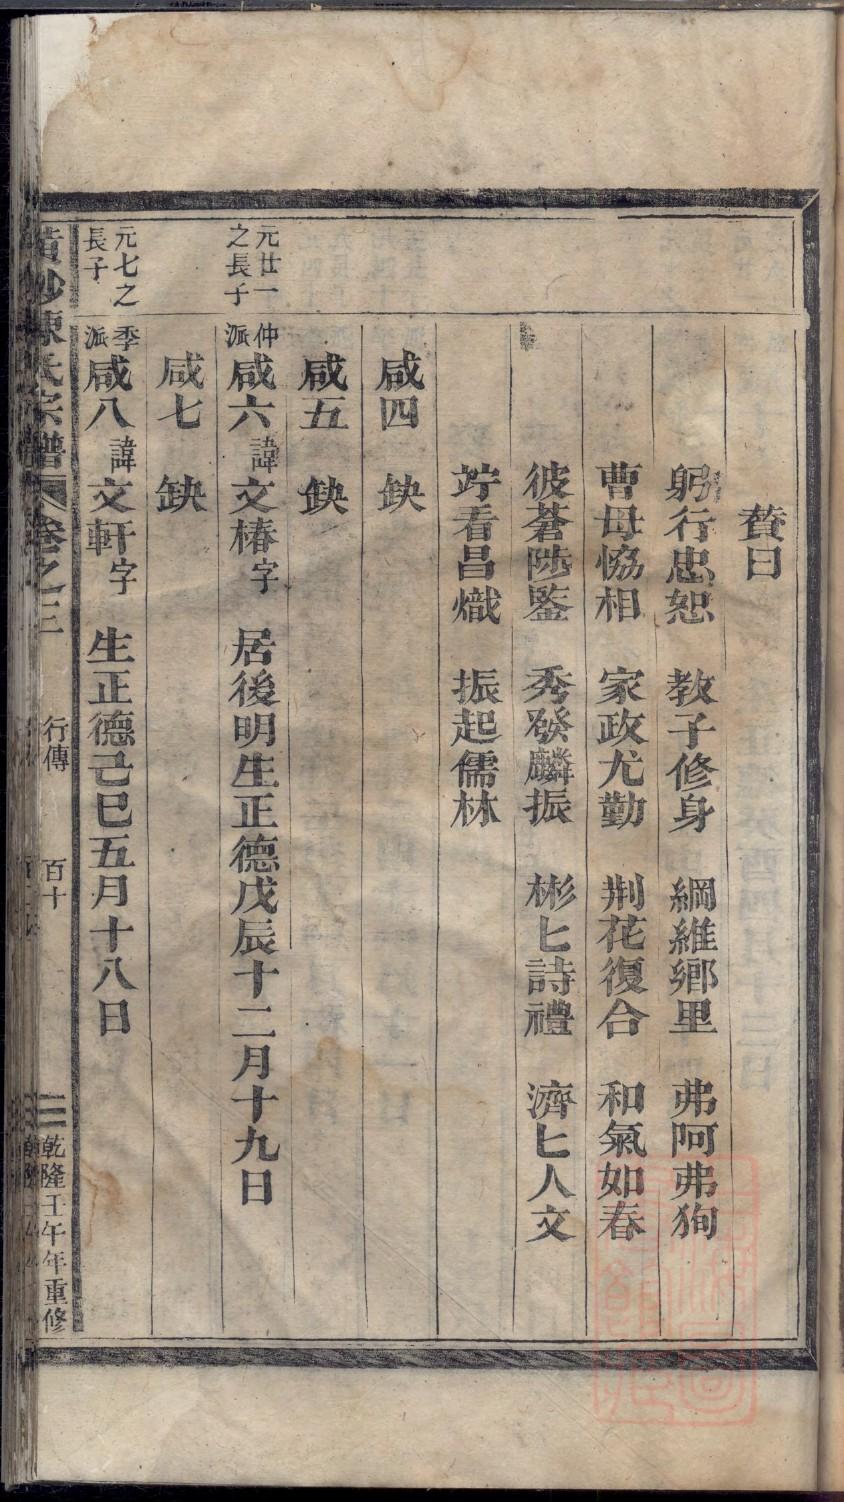 贊曰
躬行忠恕 教子修身 綱維鄉里 弗阿弗狥
曹母恊相 家政尤勤 荆花復合 和氣如春
彼蒼陟監 秀發麟振 彬匕詩禮 濟匕人文
竚看昌熾 振起儒林
咸四 缺
咸五 缺
元廿一之長子
仲派
咸六 諱文椿字 居後明生正德戊辰十二月十九日
咸七 缺
元七之長子
季派
咸八 諱文軒字 生正德己巳五月十八日
陳氏宗譜 卷之三 行傳 百十 乾隆壬午年重修